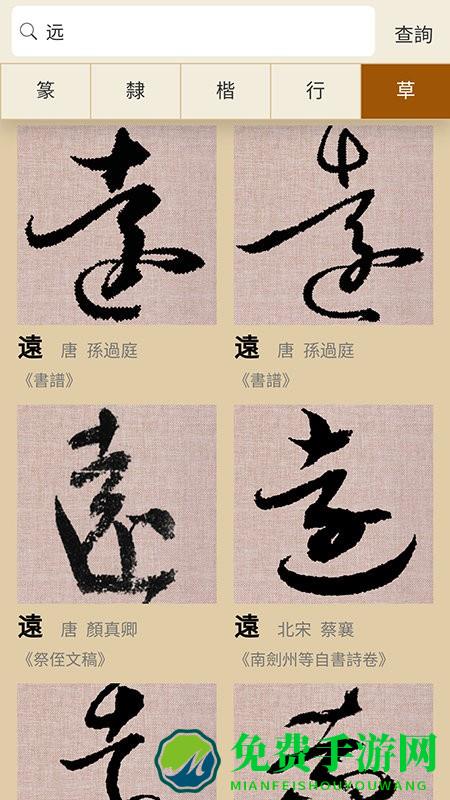 远
查詢
篆 隸 楷 行 草
遠
遠
遠 唐 孫過庭
《書譜》
遠 唐 孫過庭
《書譜》
遠
遠
遠 唐 顏真卿
《祭侄文稿》
遠 北宋 蔡襄
《南劍州等自書詩卷》
免费手游网
MIANFEISHOUYOUWANG